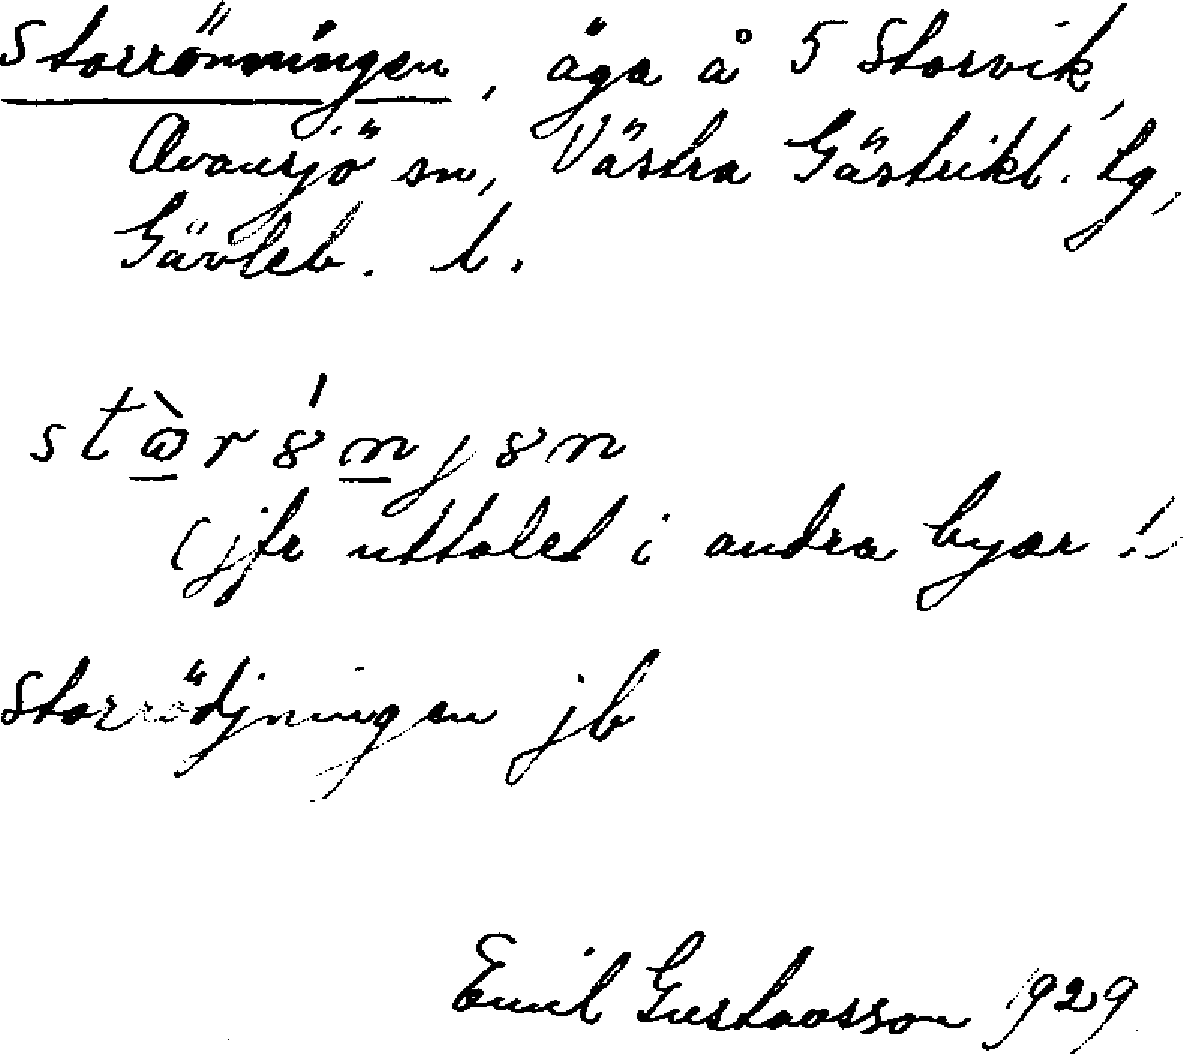 Storrönningen, äga å 5 Storvik,
Ovansjö sn, Västra Gästrikl. tg,
Gävleb. l.
(jfr uttalet i andra byar!)
Storrödjningen jb
Emil Gustavsson 1929